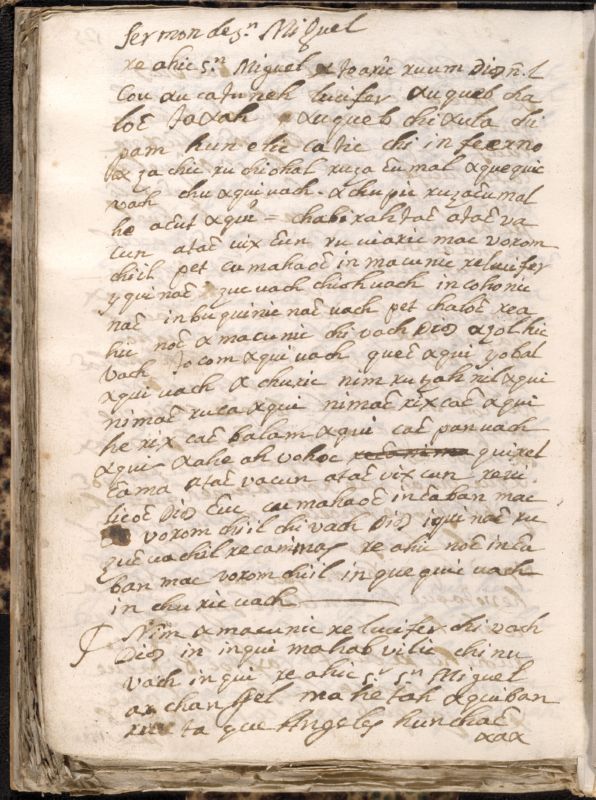 sermon de sn Miguel
re ahic sn Miguel xtoaric ruum Dios n.l
cou xucatuneh lucifer xuqueb cha
loč taxah xuqueb chixula chi
pam hun chic catic chi infierno
chic ruchiohal ruza čumal xquequic
vach chuxquivach xchupic ruzačumal
he ačut xqui = chabirahtač atač va
cun atač vix čun ru mac vorom
chiil pet cumahaoč inmacunic relucifer
yquinač quc vach chiohvach incohonic
nač inbuquinic nač vach pet chaloč rea
hic noč xmacunic chi vach Dios xzolhic
vach com xqui vach queč xqui yobal
xqui vach xchuric nim rutzahnil xqui
nimač ruca xqui nimač rixcač xqui
he rix cač balam xqui cač panvach
xqui xahe ah vohoc quixel
čama atač vacun atač vix cun reri
licoč Dios čuc cumahaoč inčaban mac
vorom chiil chi vach Dios iquinač ru
quc vachil recanimas re ahic noč inča
ban mac voromchiil inquequic vach
in churic vach
Nim xmacunic re lucifer chi vach
Dios in inqui mahab vilic chi nu
vach inqui re ahic sr sn Miguel
archangel mahetah xquiban
ta que Angeles hunchač
xax